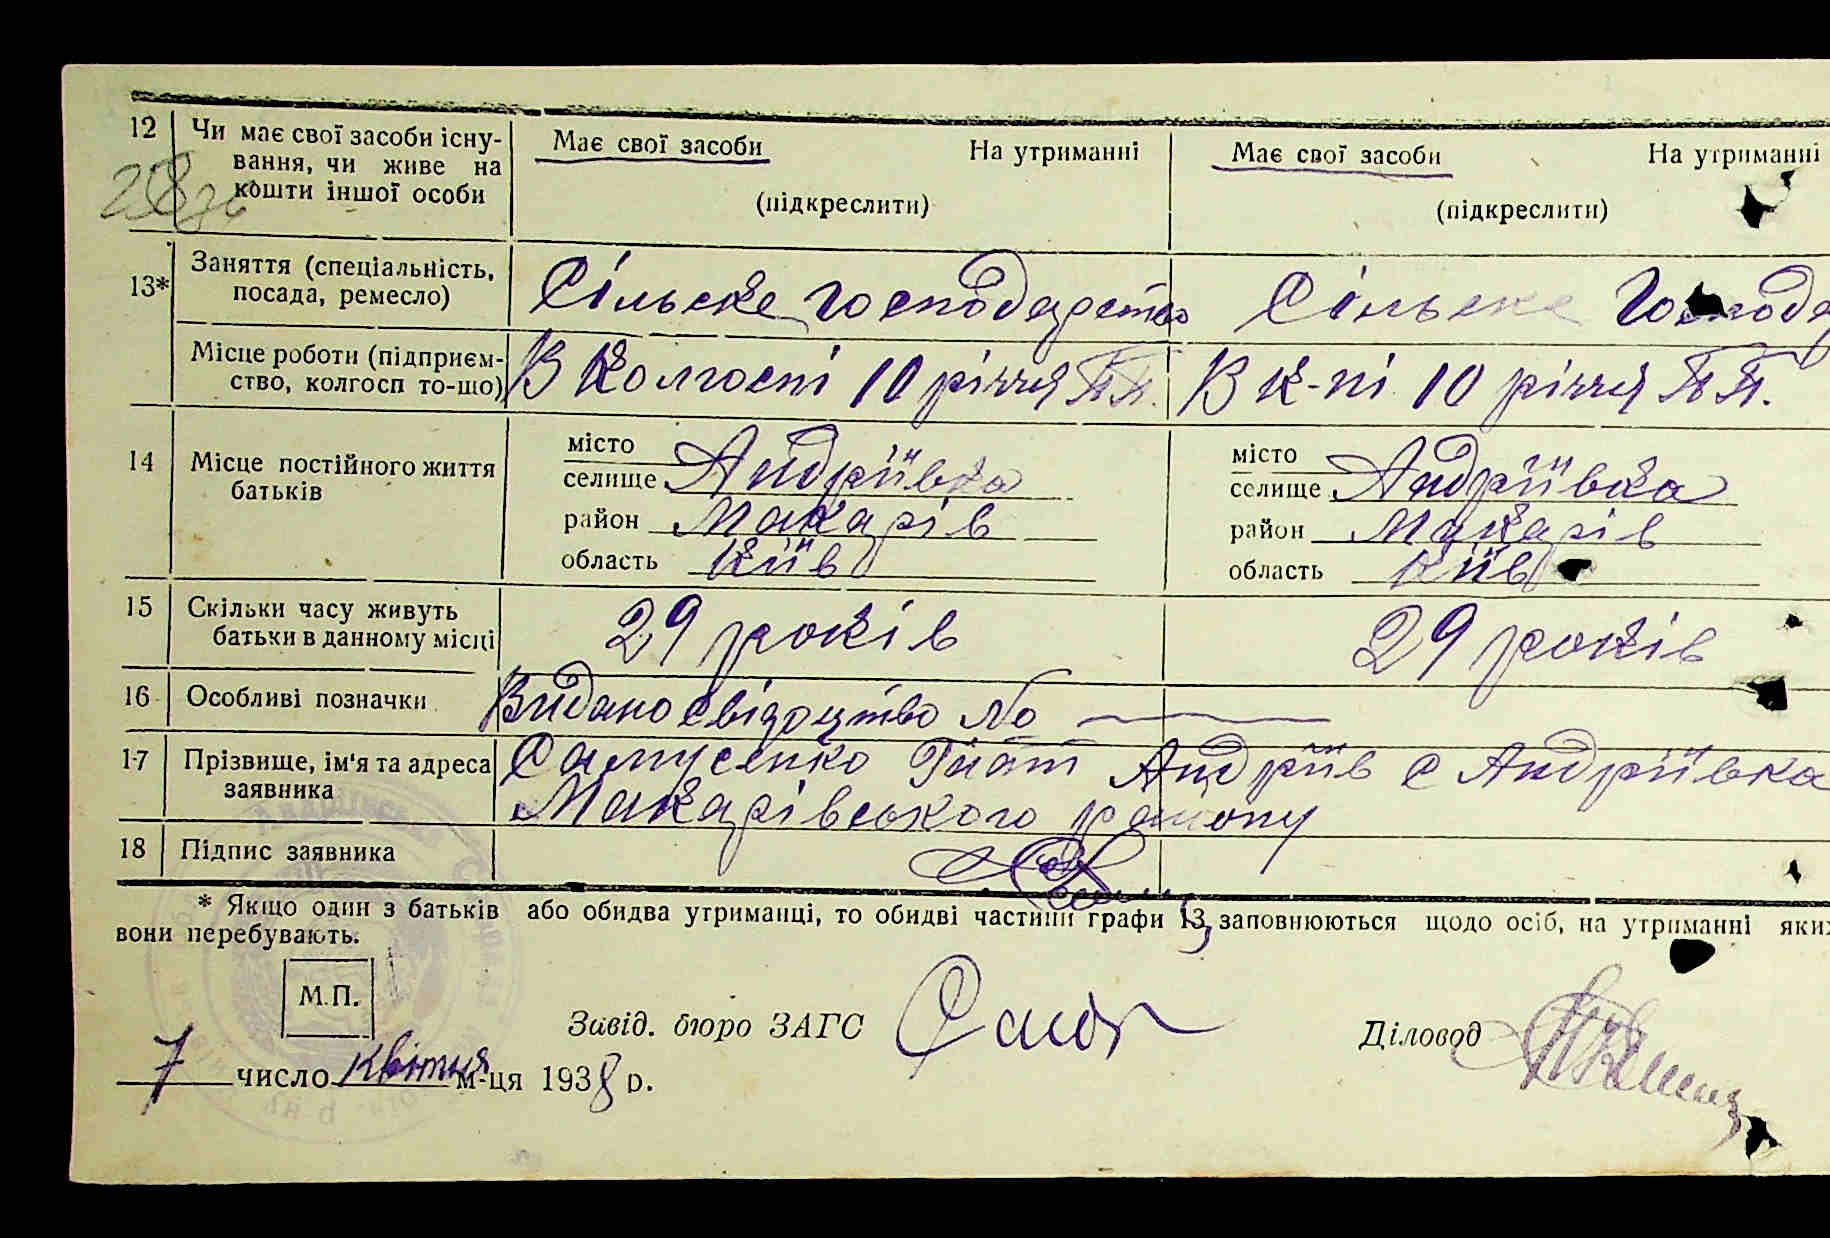 12 Чи має свої засоби існу- Має свої засоби На утриманні Має свої засоби На утриманні
вання, чи живе на
кошти іншої особи (підкреслити) (підкреслити)
13* Заняття (спеціальність, Сільске Господарство Сільске Господа
посада, ремесло)
Місце роботи (підприєм- В Колгоспі 10 річчя В к-пі 10 річчя
ство, колгосп то-що)
14 Місце постійного життя місто місто
батьків селище Андріївка селище Андріївка
район Макарів район Макарів
область Київ область Київ
15 Скільки часу живуть 29 років 29 років
батьки в данному місці
16 Особливі позначки Видано свідоцтво №
17 Прізвище, ім'я та адреса Самусенко Гнат Андріїв с Андріївка
заявника Макарівського району
18 Підпис заявника
* Якщо один з батьків або обидва утриманці, то обидві частини графи 13 заповнюються щодо осіб, на утриманні яких
вони перебувають.
М.П.
Завід. бюро ЗАГС Діловод
7 число квітня м-ця 1938 р.